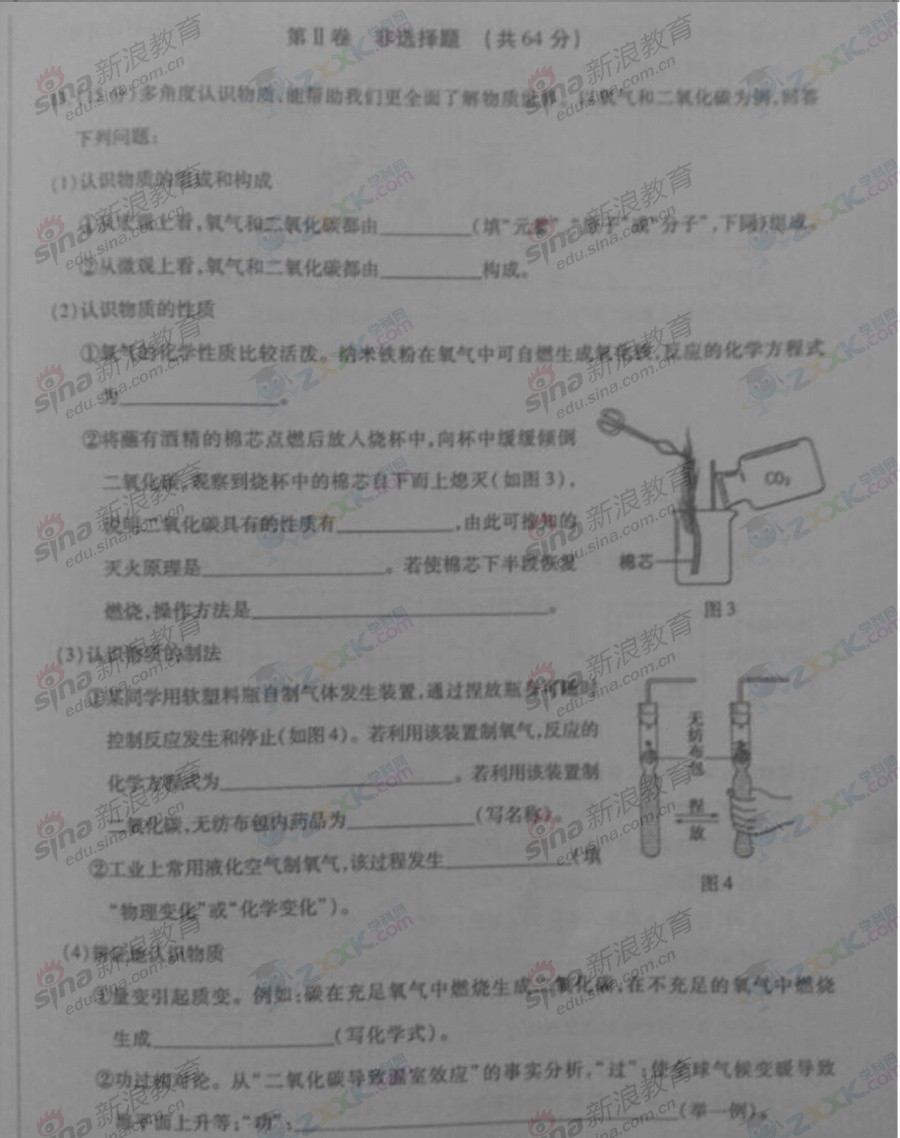 第Ⅱ卷 非选择题 (共64分)
多角度认识物质,能帮助我们更全面了解物质世界。以氧气和二氧化碳为例,回答
下列问题:
(1)认识物质的组成和构成
①从宏观上看,氧气和二氧化碳都由________(填“元素”、“原子”或“分子”,下同)组成。
②从微观上看,氧气和二氧化碳都由________构成。
(2)认识物质的性质
①氧气的化学性质比较活泼。纳米铁粉在氧气中可自燃生成氧化铁,反应的化学方程式
为________。
②将蘸有酒精的棉芯点燃后放入烧杯中,向杯中缓缓倾倒
二氧化碳,观察到烧杯中的棉芯自下而上熄灭(如图3),
说明二氧化碳具有的性质有________,由此可推知的
灭火原理是________。若使棉芯下半段恢复
燃烧,操作方法是________。
CO₂
棉芯
图3
(3)认识物质的制法
①某同学用软塑料瓶自制气体发生装置,通过捏放瓶身可随时
控制反应发生和停止(如图4)。若利用该装置制氧气,反应的
化学方程式为________。若利用该装置制
二氧化碳,无纺布包内药品为________(写名称)。
②工业上常用液化空气制氧气,该过程发生________(填
“物理变化”或“化学变化”)。
无纺布包
捏
放
图4
(4)辩证地认识物质
①量变引起质变。例如:碳在充足氧气中燃烧生成二氧化碳,在不充足的氧气中燃烧
生成________(写化学式)。
②功过相对论。从“二氧化碳导致温室效应”的事实分析,“过”:使全球气候变暖导致
海平面上升等;“功”:________(举一例)。
sina新浪教育
edu.sina.com.cn
ZXXK.com
学科网